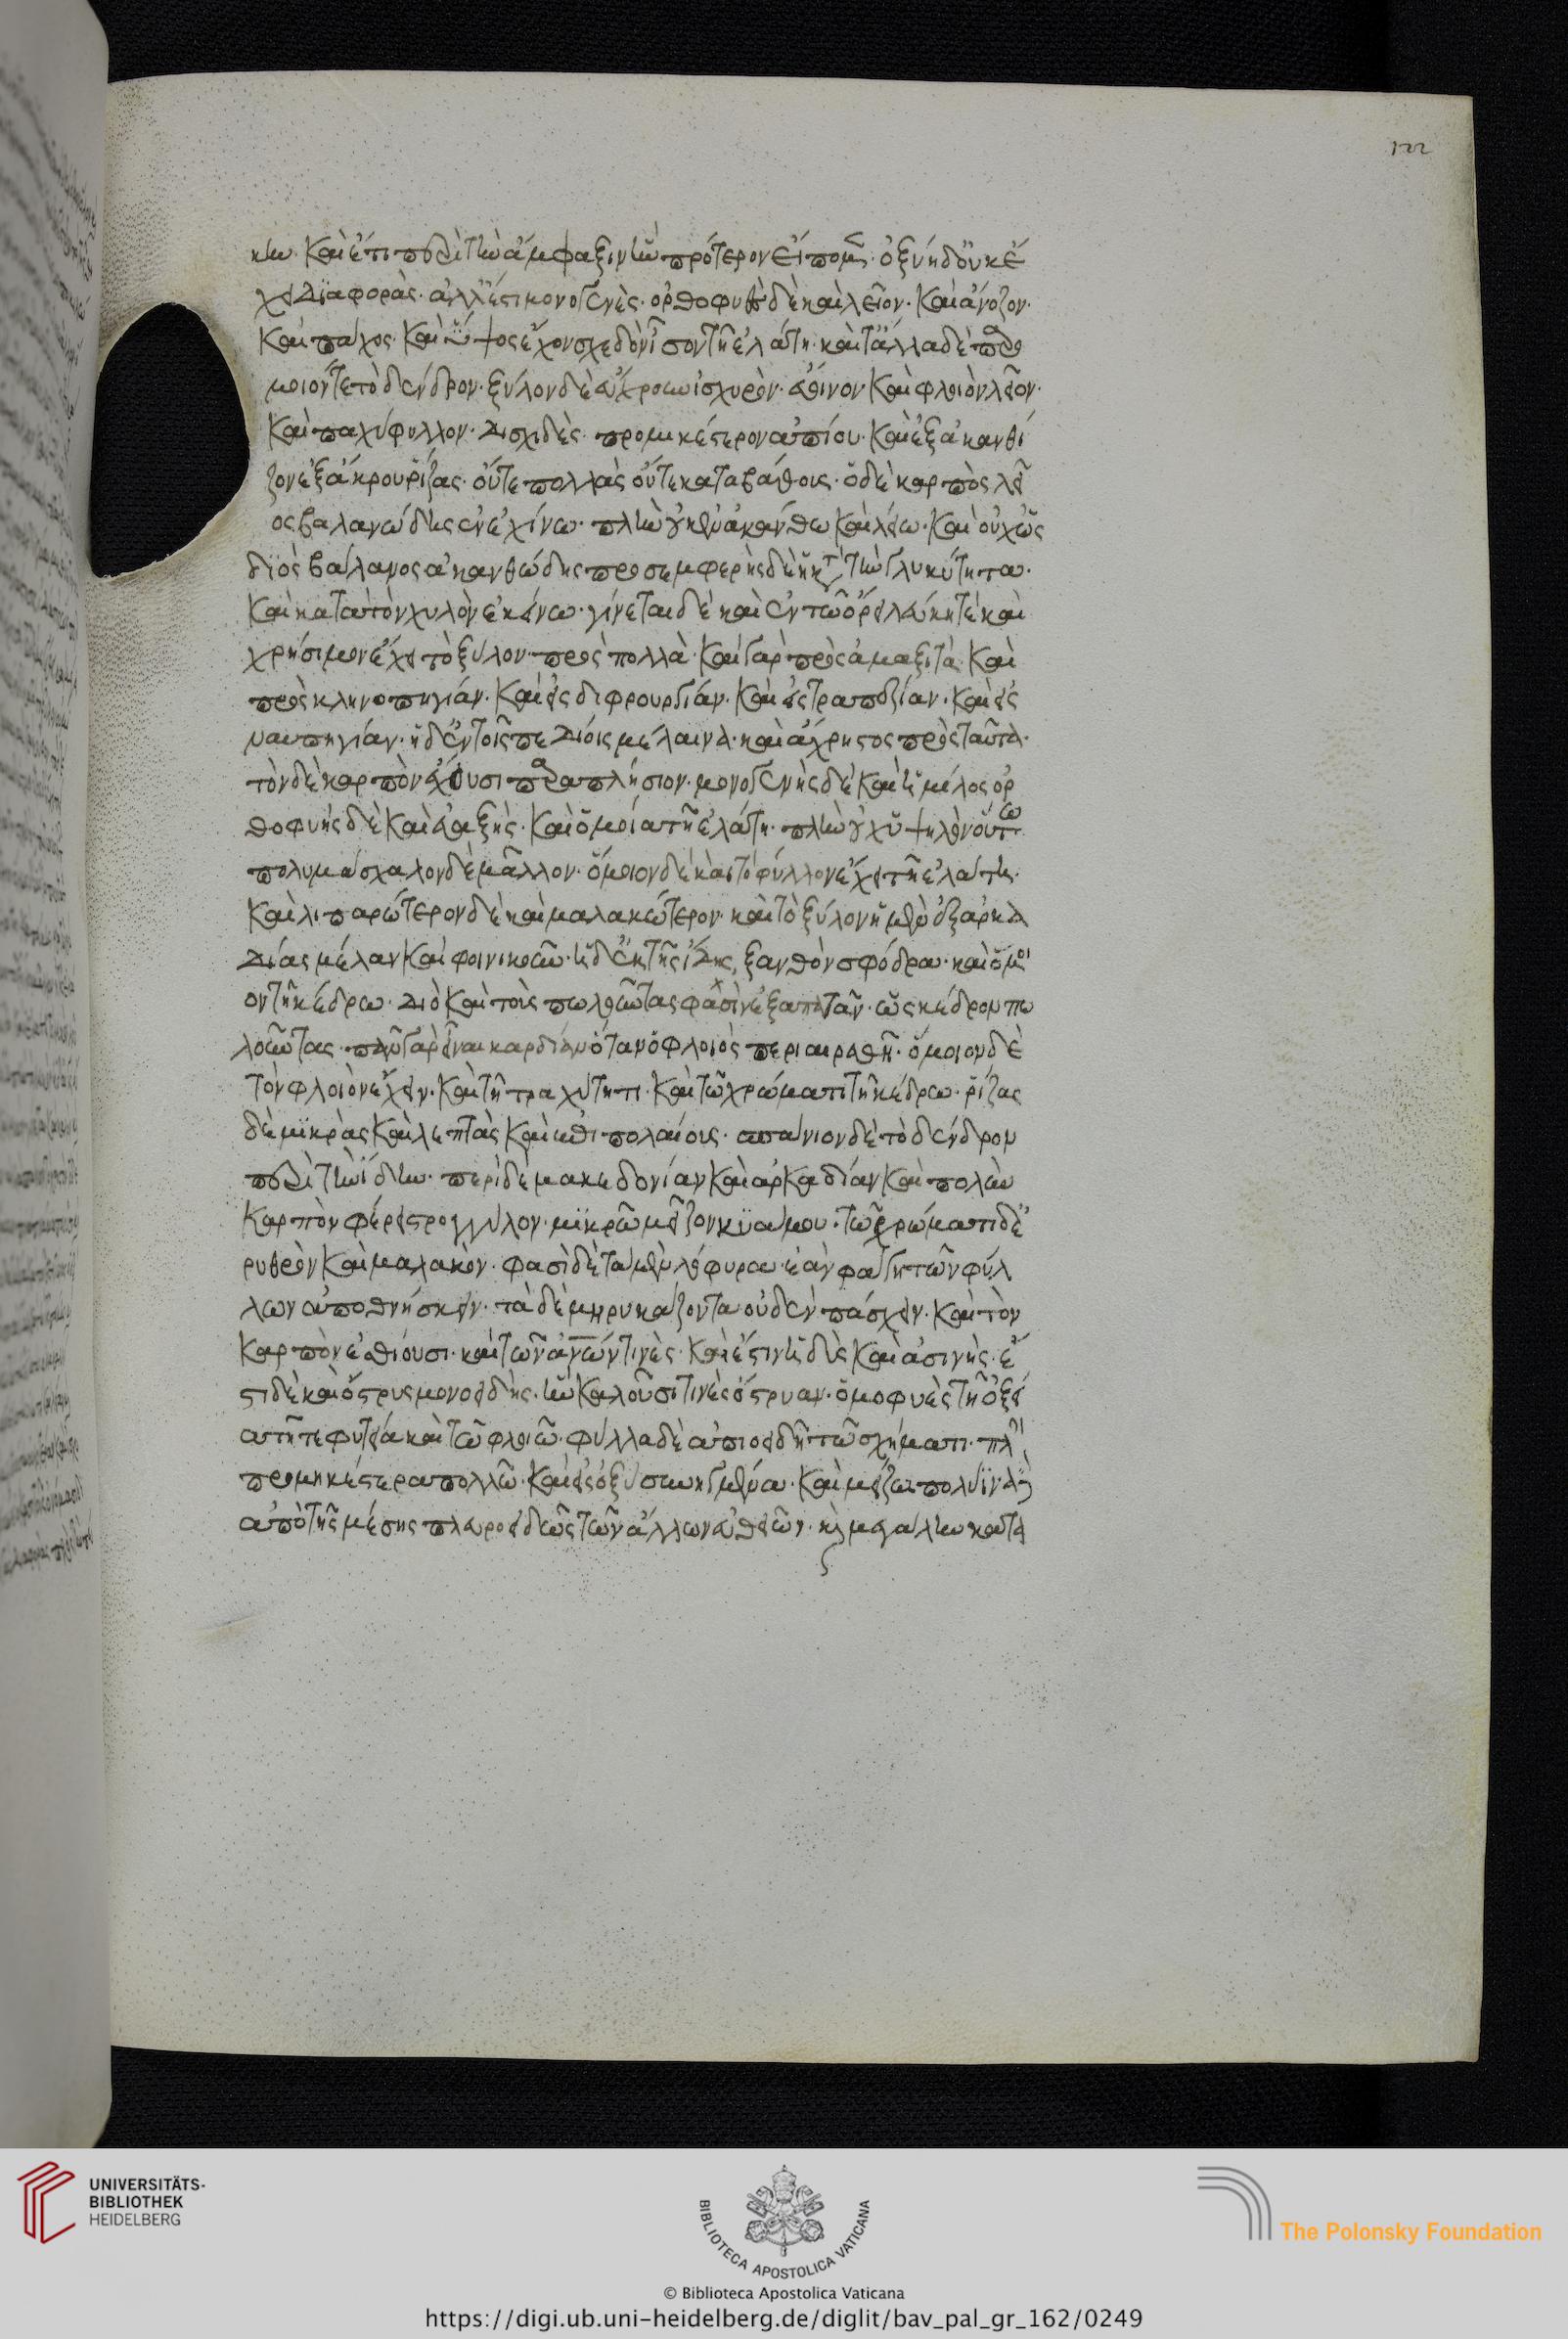 κην. καὶ ἔτι περὶ τὴν ἄμφαξιν ἣν πρότερον εἴπομεν. ὀξύη δ' οὐκ ἔ
χει διαφορὰς. ἀλλ' ἔστι μονογενὲς. ὀρθοφυὲς δὲ καὶ λεῖον. καὶ ἄνοζον.
καὶ πάχος. καὶ ὕψος ἔχον σχεδὸν ἴσον τῇ ἐλάτῃ. καὶ τἄλλα δὲ παρο
μοιόν τε τὸ δένδρον. ξύλον δὲ εὔχροων ἰσχυρὸν. εὔινον καὶ φλοιὸν λεῖον.
καὶ παχύφυλλον. δισχιδὲς. προμικέστερον ἀπίου. καὶ ἐξακανθί
ζον ἐξ ἄκρου ῥίζας. οὔτε πολλὰς οὔτε καταβάθους. ὁ δὲ καρπὸς λεῖ
ος βαλανώδης ἐν ἐχίνω. πλὴν ἀκάνθω καὶ λείω. καὶ οὐχ ὡς
διὸς βάλανος ἀκανθώδης προσεμφερὴς δὲ τὴν γλυκύτητα.
καὶ κατὰ τὸν χυλὸν ἐκείνω. γίνεται δὲ καὶ ἐν τῷ ὄρει λευκή τε καὶ
χρήσιμον ἔχει τὸ ξύλον. πρὸς πολλὰ. καὶ γὰρ πρὸς ἁμαξιτὰ. καὶ
πρὸς κλινοπηγίαν. καὶ εἰς διφρουργίαν. καὶ εἰς τραπεζίαν. καὶ εἰς
ναυπηγίαν. ἡ δ' ἐν τοῖς πεδίοις μέλαινα. καὶ ἄχρηστος πρὸς ταῦτα.
τὸν δὲ καρπὸν ἔχουσι παραπλήσιον. μονογενὴς δὲ καὶ ἡ μέλος ὀρ
θοφυής δὲ καὶ εὐαξής. καὶ ὁμοία τῇ ἐλάτῃ. πλὴν οὐχ ὑψηλὸν οὕτω
πολυμάσχαλον δὲ μᾶλλον. ὅμοιον δὲ καὶ τὸ φύλλον ἔχει τῇ ἐλάτῃ.
καὶ λιπαρώτερον δὲ καὶ μαλακώτερον. καὶ τὸ ξύλον ἡ μὲν ἐξ ἀρκα
δίας μέλαν καὶ φοινικοῦν. ἡ δ' ἐκ τῆς ἴδης, ξανθὸν σφόδρα. καὶ ὅμοι
ον τῇ κέδρω. διὸ καὶ τοὺς πωλοῦντας φασὶν ἐξαπατᾶν. ὡς κέδρον πω
λοῦντας. πᾶν γὰρ εἶναι καρδίαν ὅταν ὁ φλοιὸς περιαιρεθῇ. ὅμοιον δὲ
τὸν φλοιὸν ἔχειν. καὶ τῇ τραχύτητι. καὶ τῷ χρώματι τῇ κέδρω. ῥίζας
δὲ μικρὰς καὶ λεπτὰς καὶ ἐπιπολαίους. σπάνιον δὲ τὸ δένδρον
περὶ τὴν ἴδην. περὶ δὲ μακεδονίαν καὶ ἀρκαδίαν καὶ πολὺν
καρπὸν φέρει στρογγύλον. μικρῷ μεῖζον κυάμου. τῷ χρώματι δ' ἐ
ρυθρὸν καὶ μαλακὸν. φασὶ δὲ τὰ μὲν λόφυρα. ἐὰν φάγη τῶν φύλ
λων ἀποθνήσκειν. τὰ δὲ μηρυκάζοντα οὐδὲν πάσχειν. καὶ τὸν
καρπὸν ἐσθίουσι. καὶ τῶν ἀνων τινὲς. καὶ ἔστιν ἡδὺς καὶ ἀσινὴς. ἔ
στι δὲ καὶ ὄστρυς μονοειδής. ἣν καλοῦσί τινὲς ὄστρυαν. ὁμοφυὲς τῇ ὀξεί
α τῇ τε φυτεία καὶ τῷ φλοιῷ. φύλλα δὲ ἀπιοειδῆ τῷ σχήματι. πλὴν
προμηκέστερα πολλῷ. καὶ εἰς ὀξὺ συνηγμένα. καὶ μείζω πολύινα δὲ
ἀπὸ τῆς μέσης πλευροειδῶς τῶν ἄλλων εὐθειῶν. καὶ μεγάλων κατα
122
UNIVERSITÄTS-
BIBLIOTHEK
HEIDELBERG
BIBLIOTECA APOSTOLICA VATICANA
The Polonsky Foundation
© Biblioteca Apostolica Vaticana
https://digi.ub.uni-heidelberg.de/diglit/bav_pal_gr_162/0249